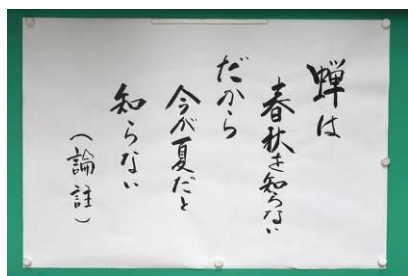 蝉は
春秋を知らない
だから
今が夏だと
知らない
（論註）